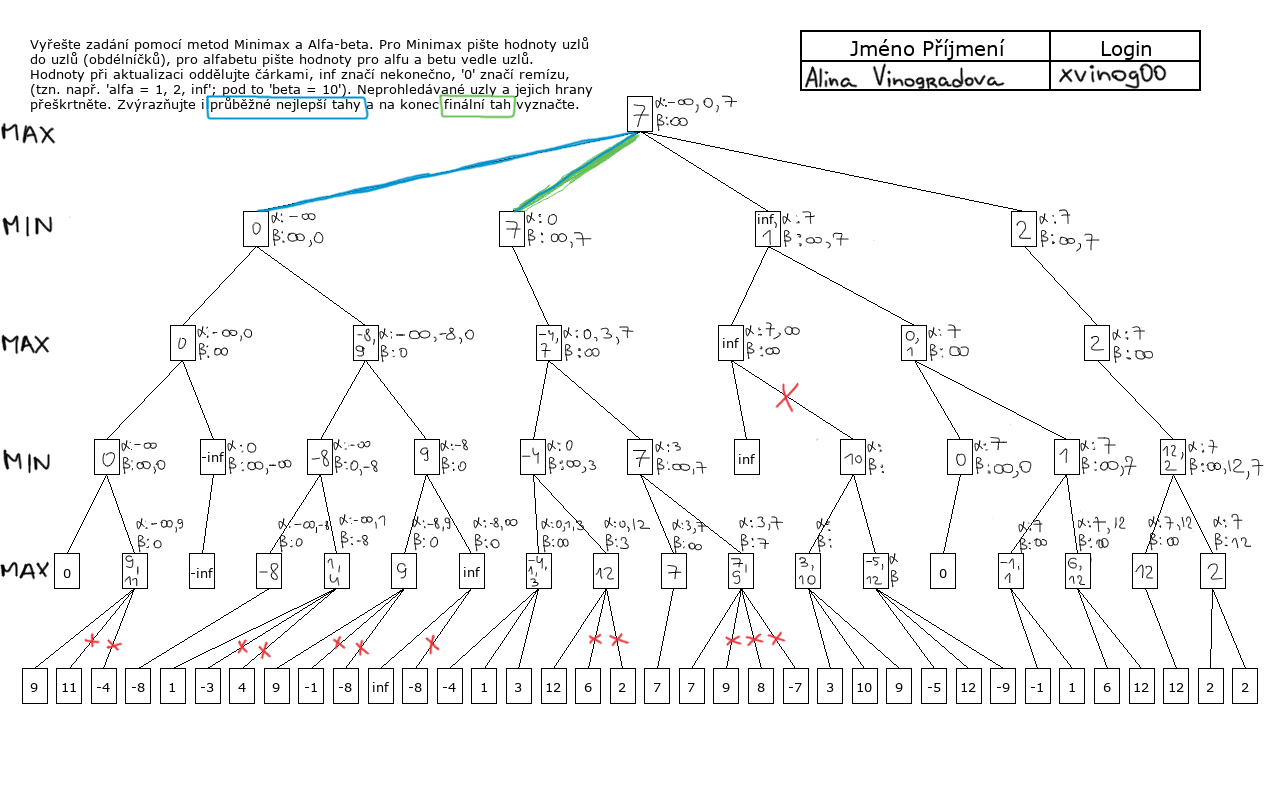 Vyřešte zadání pomocí metod Minimax a Alfa-beta. Pro Minimax pište hodnoty uzlů
do uzlů (obdélníčků), pro alfabetu pište hodnoty pro alfu a betu vedle uzlů.
Hodnoty při aktualizaci oddělujte čárkami, inf značí nekonečno, '0' značí remízu,
(tzn. např. 'alfa = 1, 2, inf'; pod to 'beta = 10'). Neprohledávané uzly a jejich hrany
přeškrtněte. Zvýrazňujte i průběžné nejlepší tahy a na konec finální tah vyznačte.
Jméno Příjmení Login
Alina Vinogradova xvinog00
MAX
7 α:-∞,0,7
β:∞
MIN
0 α:-∞
β:∞,0
7 α:0
β:∞,7
inf, 1 α:7
β:∞,7
2 α:7
β:∞,7
MAX
0 α:-∞,0
β:∞
-8, 9 α:-∞,-8,0
β:0
-4, 7 α:0,3,7
β:∞
inf α:7,∞
β:∞
0, 1 α:7
β:∞
2 α:7
β:∞
MIN
0 α:-∞
β:∞,0
-inf α:0
β:∞,-∞
-8 α:-∞
β:0,-8
9 α:-8
β:0
-4 α:0
β:∞,3
7 α:3
β:∞,7
inf
10 α:
β:
0 α:7
β:∞,0
1 α:7
β:∞,7
12, 2 α:7
β:∞,12,7
MAX
0
9, 11 α:-∞,9
β:0
-inf
-8 α:-∞,-8
β:0
1, 4 α:-∞,1
β:-8
9 α:-8,9
β:0
inf α:-8,∞
β:0
-4, 1, 3 α:0,1,3
β:∞
12 α:0,12
β:3
7 α:3,7
β:∞
7, 9 α:3,7
β:7
3, 10 α:
β:
-5, 12 α
β
0
-1, 1 α:7
β:∞
6, 12 α:7,12
β:∞
12 α:7,12
β:∞
2 α:7
β:12
9 11 -4 -8 1 -3 4 9 -1 -8 inf -8 -4 1 3 12 6 2 7 7 9 8 -7 3 10 9 -5 12 -9 -1 1 6 12 12 2 2